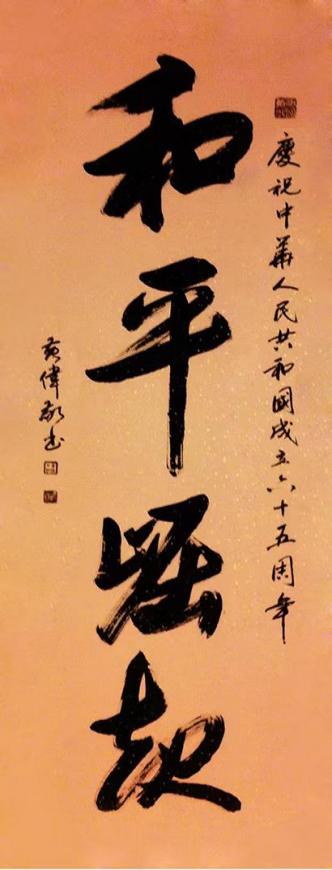 慶祝中華人民共和國成立六十五周年
和平崛起
黄偉書